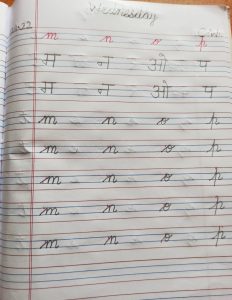 Wednesday
m - n - o - p
म - न - ओ - प
म - न - ओ - प
m - n - o - p
m - n - o - p
m - n - o - p
m - n - o - p
m - n - o - p